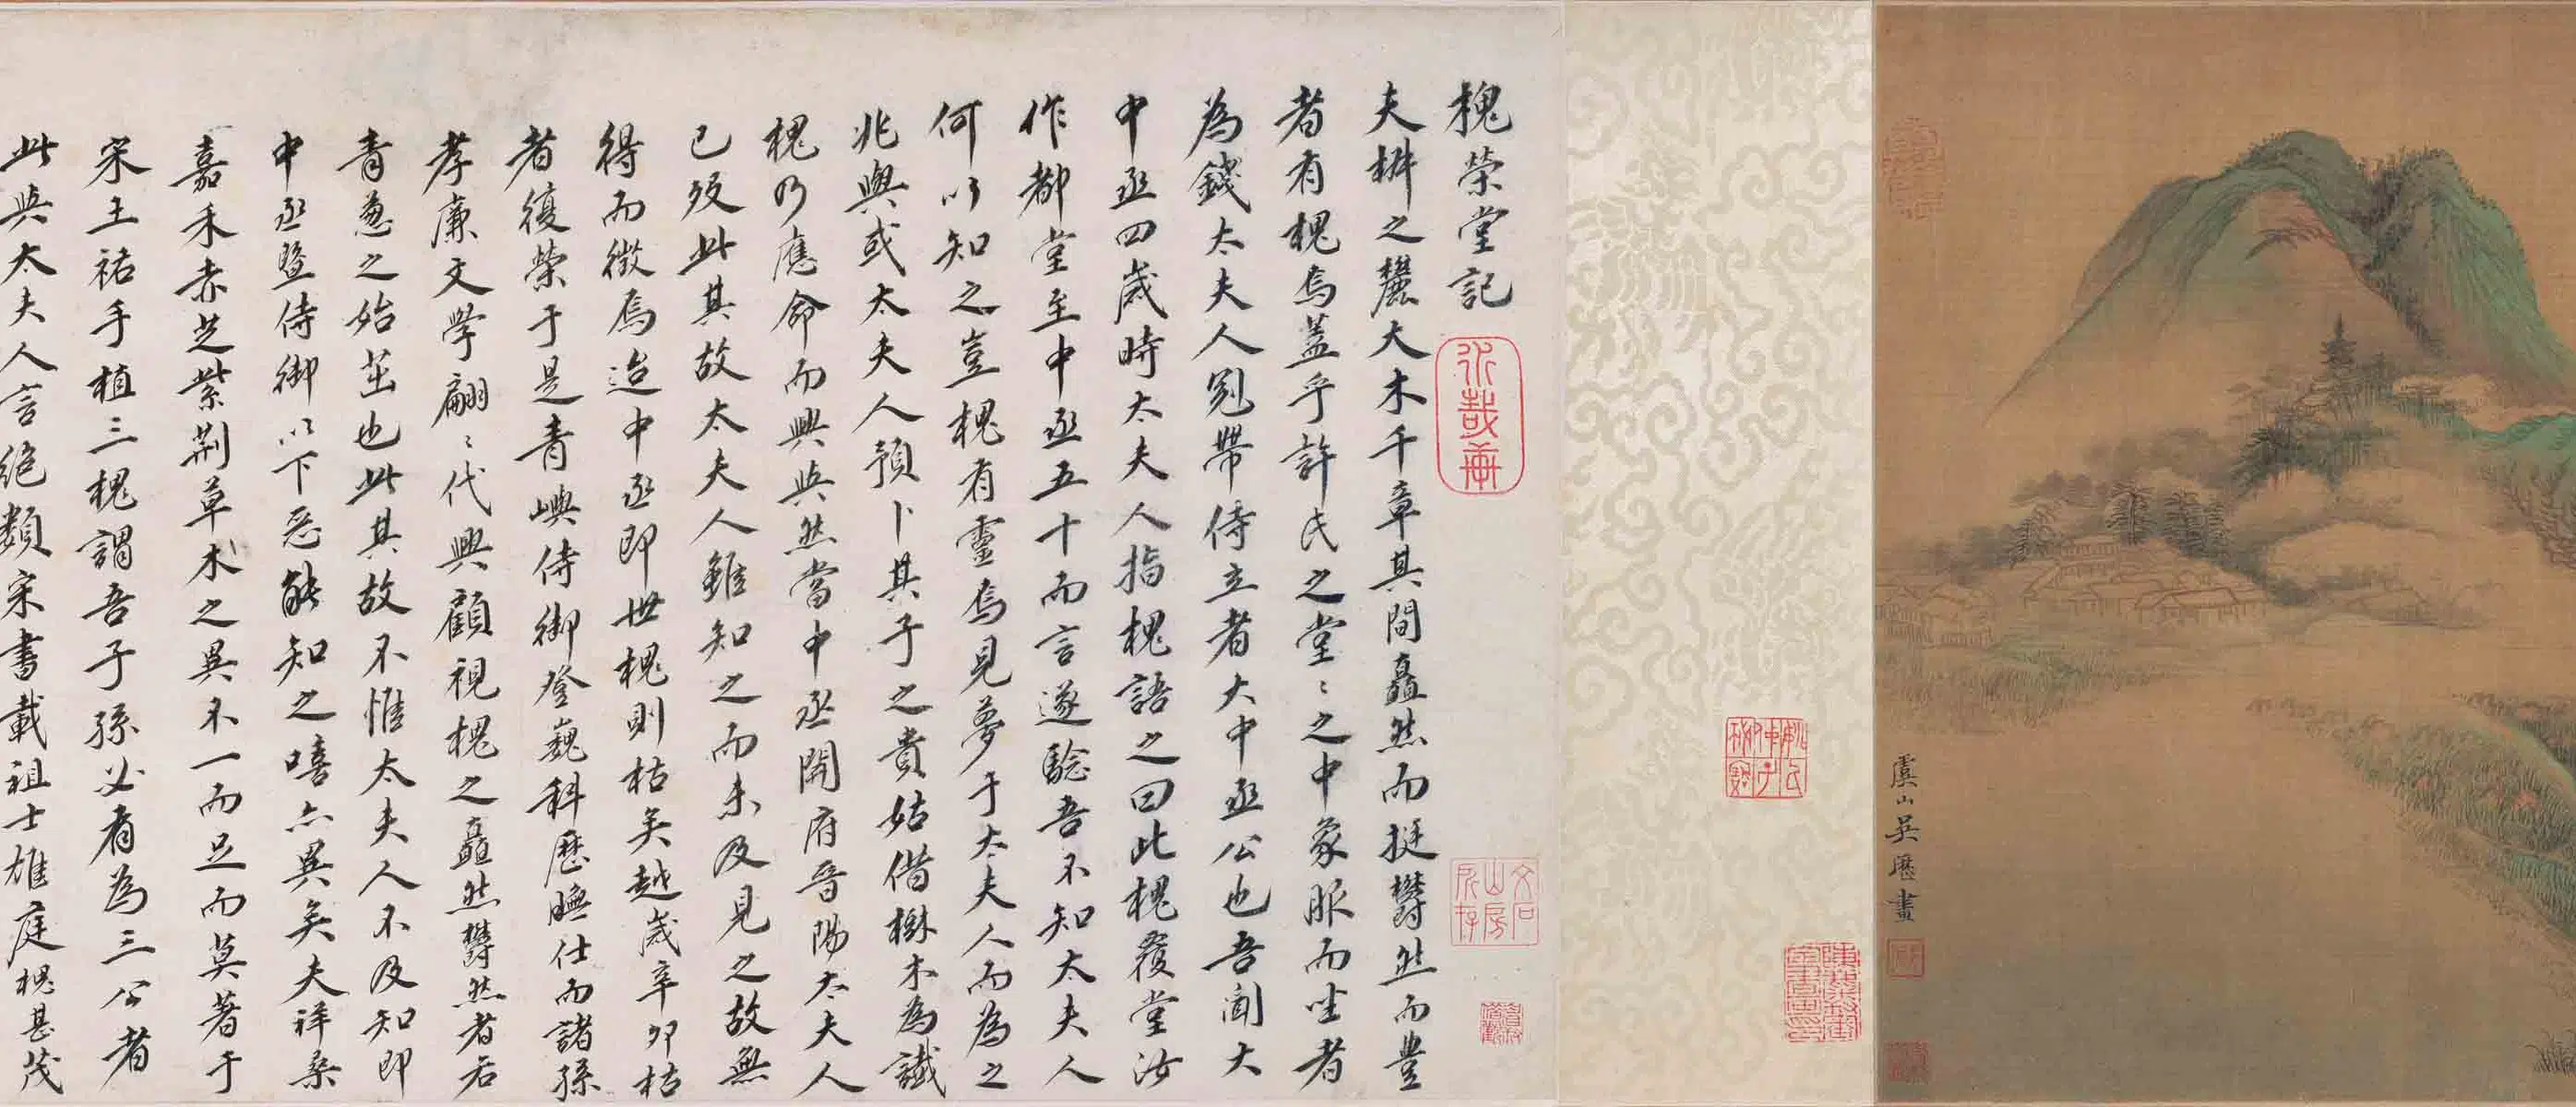 虞山吳歷畫
槐榮堂記
夫栟之麓大木千章其間矗然而挺欝然而豊
者有槐焉蓋乎許氏之堂堂之中象服而坐者
為錢太夫人冠帶侍立者大中丞公也吾聞大
中丞四歲時太夫人指槐語之曰此槐覆堂汝
作都堂至中丞五十而言遂驗吾不知太夫人
何以知之豈槐有靈焉見夢于太夫人而為之
兆與或太夫人預卜其子之貴姑借樹木為讖
槐乃應命而興與然當中丞開府晉陽太夫人
已歿此其故太夫人雖知之而未及見之故無
得而徵焉迨中丞即世槐則枯矣越歲辛卯枯
者復榮于是青嶼侍御登巍科歷膴仕而諸孫
孝廉文學翩〻代興顧視槐之矗然欝然者若
青葱之始茁也此其故不惟太夫人不及知即
中丞暨侍御以下惡能知之嘻亦異矣夫祥桑
嘉禾赤芝紫荆草木之異不一而足而莫著于
宋王祐手植三槐謂吾子孫必有為三公者
此與太夫人言絕類宋書載祖士雄庭槐甚茂
文石山房